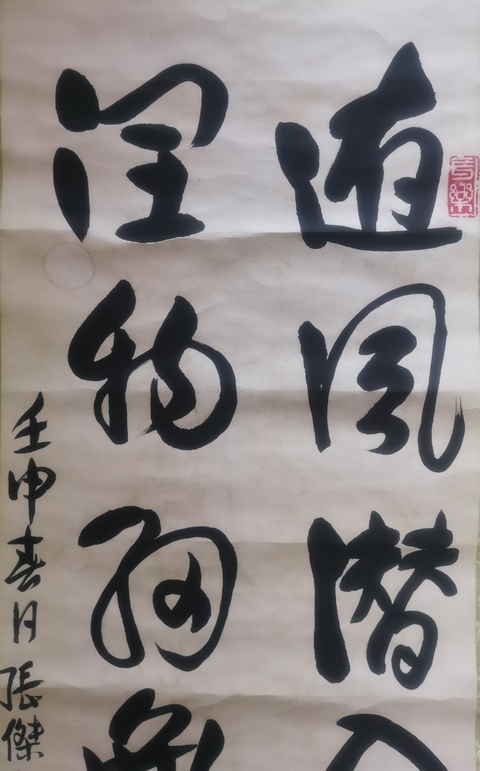 随風潜入
润物細無
壬申春月張傑